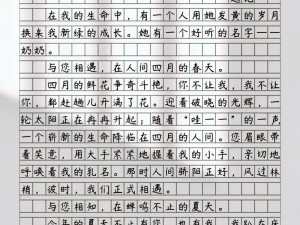 在我的生命中，有一个人用她发黄的岁月
换来我新绿的成长。她有一个好听的名字——
奶奶。
与您相遇，在人间四月的春天。
四月的鲜花争奇斗艳，你不让我，我不让
你，都赶趟儿开满了花。迎着破晓的光辉，一
轮太阳正在冉冉升起；随着“哇——”的一声
一个崭新的生命降临在四月的人间。您眉眼带
着笑意，用大手紧紧地握着我的小手，亲切地
呼唤着我的乳名。那时人间骄阳正好，风过林
梢，彼时，我们正式相遇。
与您相知，在蝉鸣不止的夏天。